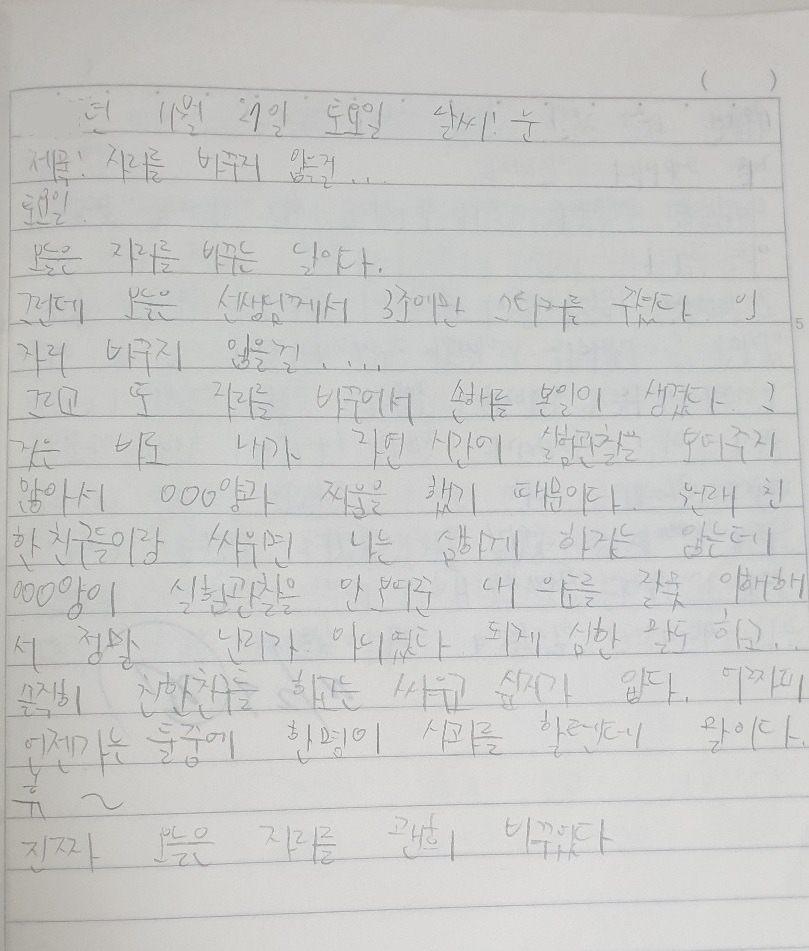 ( )
년 11월 27일 토요일 날씨! 눈
제목! 자리를 바꾸지 않을걸...
토요일.
오늘은 자리를 바꾸는 날이다.
그런데 오늘은 선생님께서 3조에만 스티커를 주셨다 이
자리 바꾸지 않을걸.....
그리고 또 자리를 바꾸에서 손해를 본일이 생겼다. 그
것은 바로 내가 자연 시간에 실험관찰을 보여주지
않아서 000양과 싸움을 했기 때문이다. 원래 친
한 친구들이랑 싸우면 나는 심하게 하지는 않는데
000양이 실험관찰을 안 보여준 내 의도를 잘못 이해해
서 정말 난리가 아니였다. 되게 심한 말도 하고..
솔직히 친한친구들 하고는 싸우고 싶지가 않다. 어짜피
언젠가는 둘중에 한명이 사과를 할텐데 말이다.
휴~
진짜 오늘은 자리를 괜히 바꾸었다
5